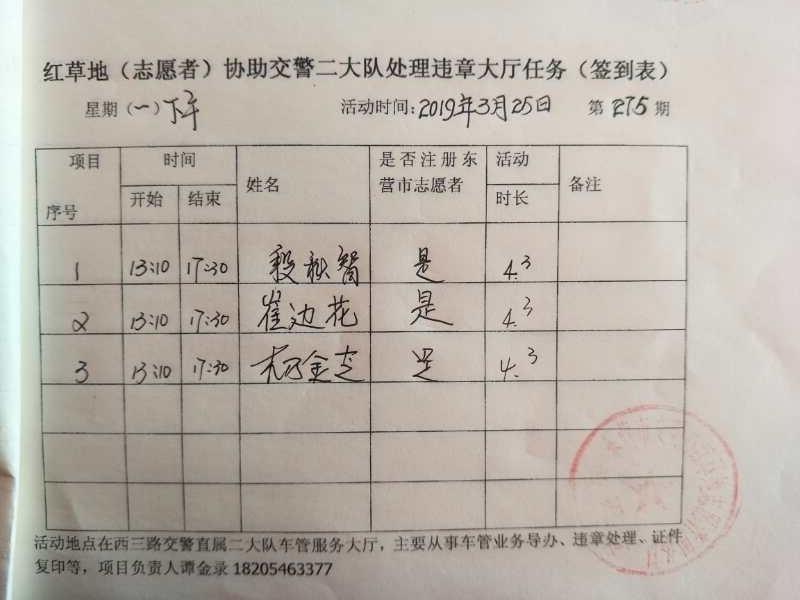 红草地（志愿者）协助交警二大队处理违章大厅任务（签到表）
星期（一）下午 活动时间: 2019年3月25日 第 275 期
项目 时间 姓名 是否注册东营市志愿者 活动时长 备注
序号 开始 结束
1 13:10 17:30 段秋智 是 4.3
2 13:10 17:30 崔边花 是 4.3
3 13:10 17:30 是 4.3
活动地点在西三路交警直属二大队车管服务大厅，主要从事车管业务导办、违章处理、证件
复印等，项目负责人谭金录 18205463377